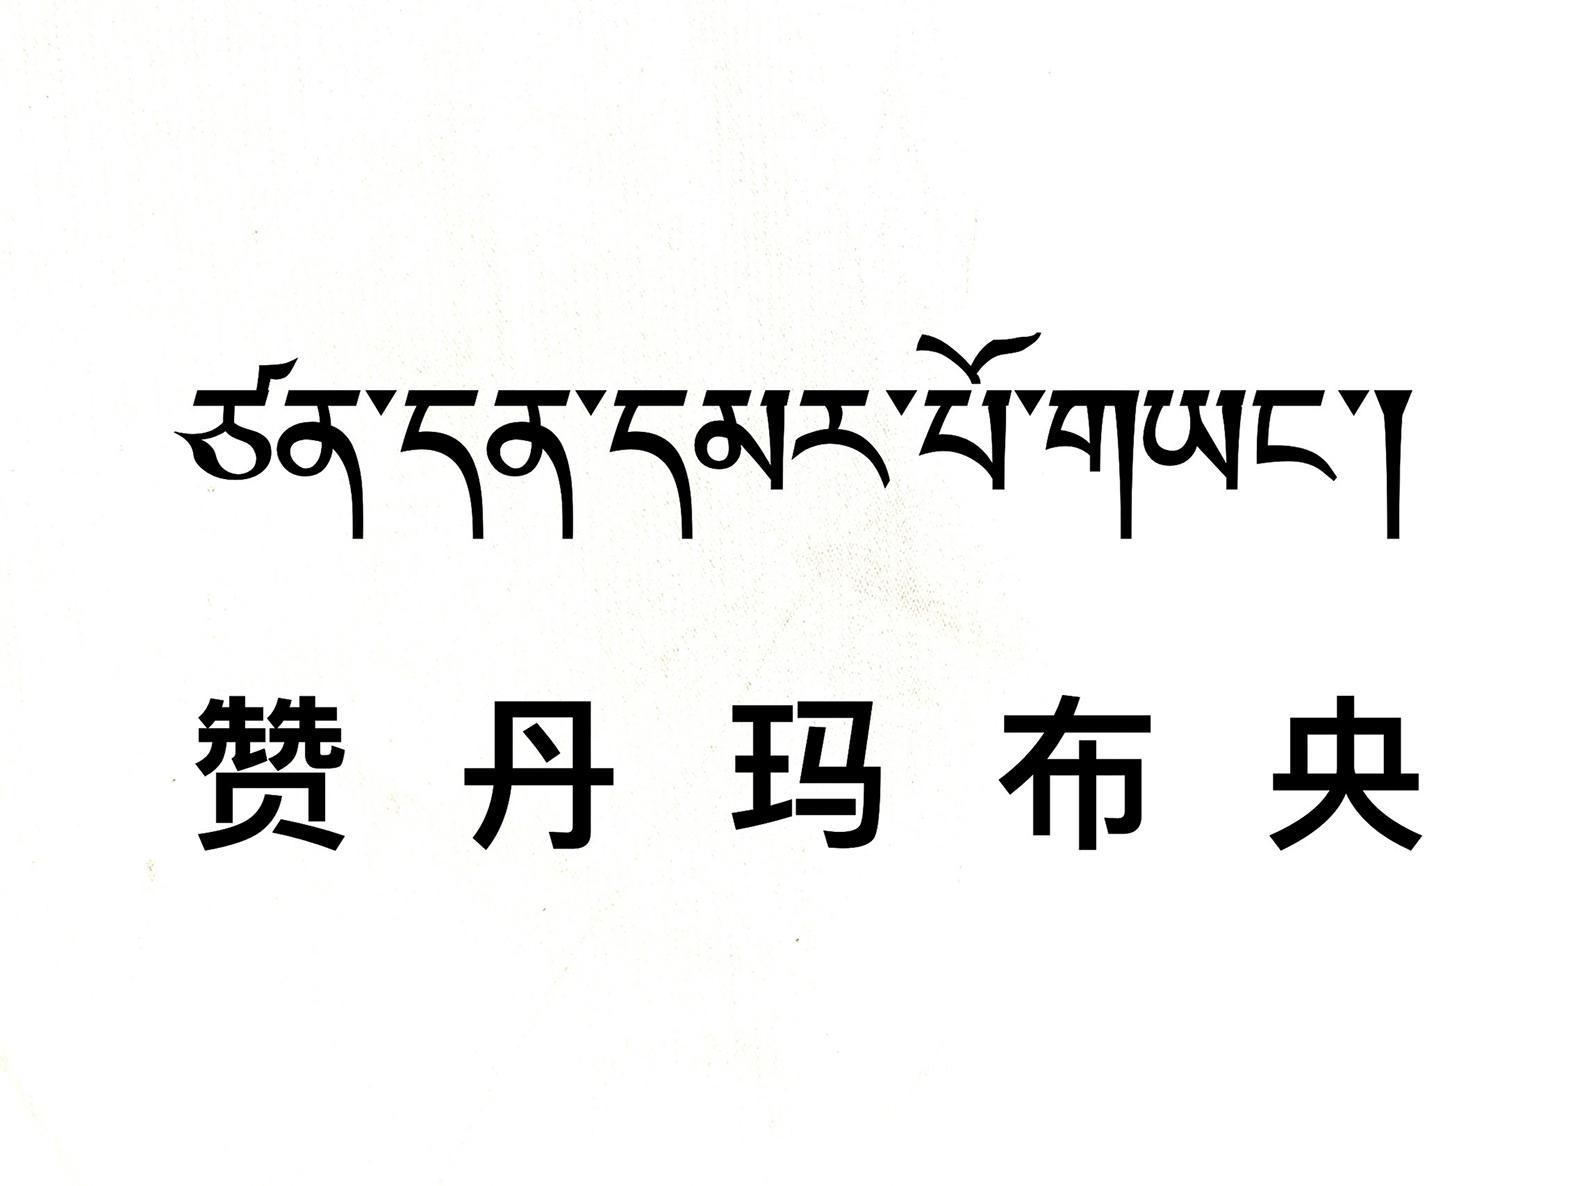 ཙན་དན་དམར་པོ་གཡང་།
赞丹玛布央